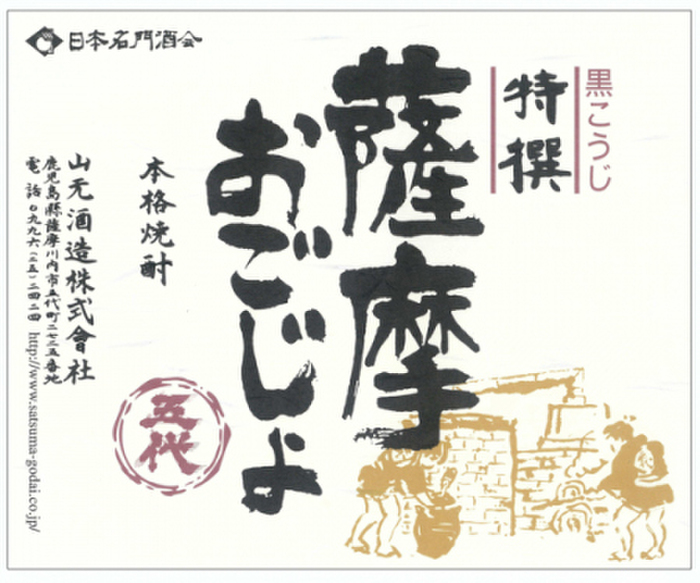 日本名門酒会
黒こうじ
特撰
薩摩
おごじょ
本格焼酎
五代
山元酒造株式會社
鹿児島縣薩摩川内市五代町二七二五番地
電話〇九九六(二五)二四二四
http://www.satsuma-godai.co.jp/